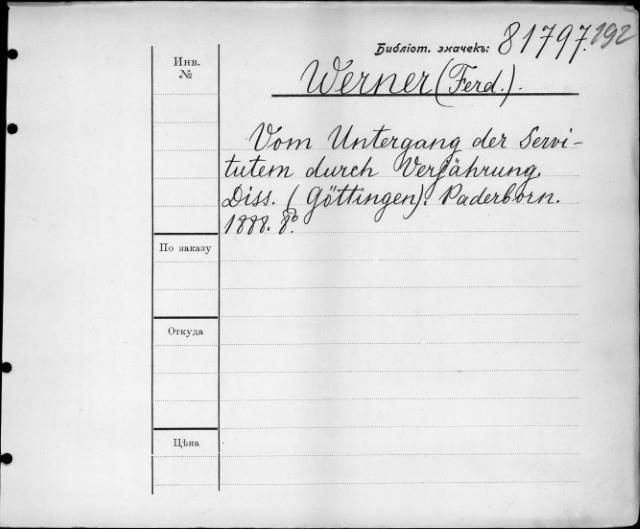 Библіот. значекъ: 81797.192
Инв.
№
Werner (Ferd.).
Vom Untergang der Servi-
tutem durch Verjährung.
Diss. (Göttingen). Paderborn.
1888. 8º.
По заказу
Откуда
Цѣна